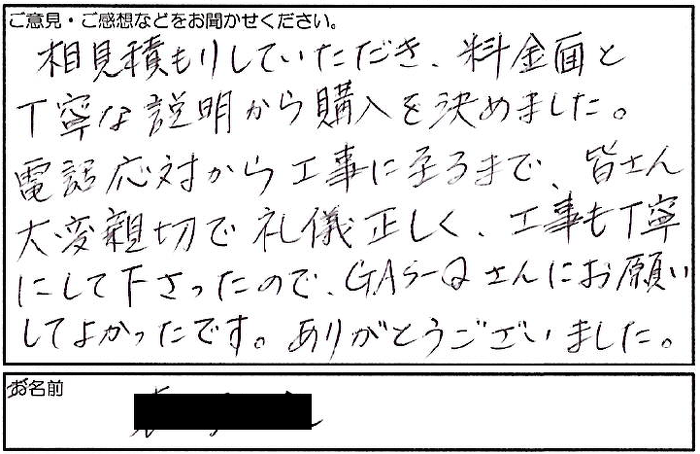 ご意見・ご感想などをお聞かせください。
相見積もりしていただき、料金面と
丁寧な説明から購入を決めました。
電話応対から工事に至るまで、皆さん
大変親切で礼儀正しく、工事も丁寧
にして下さったので、GAS-Qさんにお願い
してよかったです。ありがとうございました。
お名前